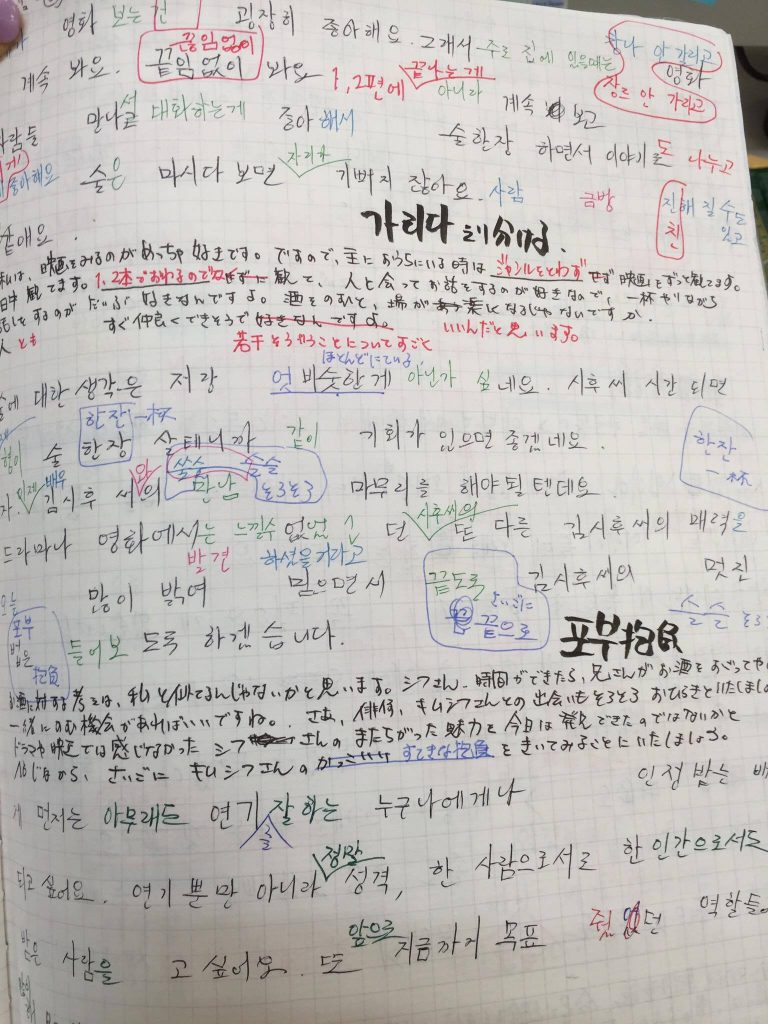 영화 보는 건 굉장히 좋아해요. 그래서 주로 집에 있을때는
장르 안 가리고
영화
장르 안 가리고
끊임없이
계속 봐요. 끝임없이 봐요 1,2편에 끝나는게 아니라 계속 보고
사람들 만나서 대화하는게 좋아해서 술한장 하면서 이야기도 나누고
좋아해요 술은 마시다 보면 자리가 기뻐지잖아요. 사람 금방 진해질 수도 있고
친
같애요.
가리다 より分ける.
私は、映画をみるのがめっちゃ好きです。ですので、主におうちにいる時はジャンルをとわずせず映画をずっと観てます。
観てます。1、2本でおわるのでなくせずに観て、人と会ってお話をするのが好きなので、一杯やりながら
するのがだいぶ好きなんですよ。酒をのむと、場が楽しくなるじゃないですか。
人とも すぐ仲良くできそうで好きなんですよ。 いいんだと思います。
若干そうゆうことについてすごと
ほとんどにている
술에 대한 생각은 저랑 엇비슷한게 아닌가 싶네요. 시후씨 시간 되면
한잔 一杯
형이 술 한장 살테니까 같이 기회가 있으면 좋겠네요.
한잔
一杯
쓸쓸 슬슬
そろそろ
자. 이제 배우 김시후 씨와의 만남 마무리를 해야될텐데요.
드라마나 영화에서는 느낄수 없었던 시후씨의 또 다른 김시후씨의 매력을
발견 하셨을거라고
오늘 많이 발견 믿으면서 끝으로 김시후씨의 멋진
끝도록
さいごに
끝으로
슬슬 そろそろ
포부
抱負
들어보도록 하겠습니다.
포부 抱負
お酒に対する考えは、私と似てるんじゃないかと思います。シフさん、時間ができたら、兄さんがお酒をおごってやるから
一緒にのむ機会があればいいですね。さあ、俳優、キムシフさんとの出会いもそろそろおひらきといたしましょう
ドラマや映画では感じなかったシフさんのまたちがった魅力を今日は発見できたのではないかと
信じながら、さいごにキムシフさんのすてきな抱負をきいてみることにいたしましょう。
먼저는 아무래도 연기 잘하는 누구나에게나 인정 받는 배
를
되고 싶어요. 연기 뿐만 아니라 정말 성격, 한 사람으로서도 한 인간으로서도
받은 사람을 고 싶어요. 또 앞으로 지금까지 목표 줬었던 역할들